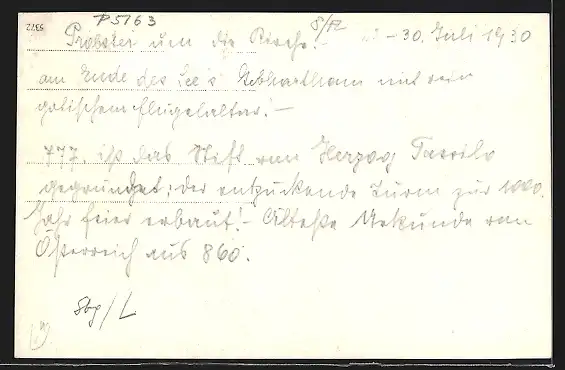 5372
P5163
S/R
Probstei um die Kirche! - 30. Juli 1930
am Ende des See's Gebhartham mit rein
gotischem Flügelaltar! -
777. ist das Stift von Herzog Tassilo
gegründet; der entzückende Turm zur 1000.
Jahr feier erbaut! - Älteste Urkunde von
Österreich aus 860.
Sbg/L